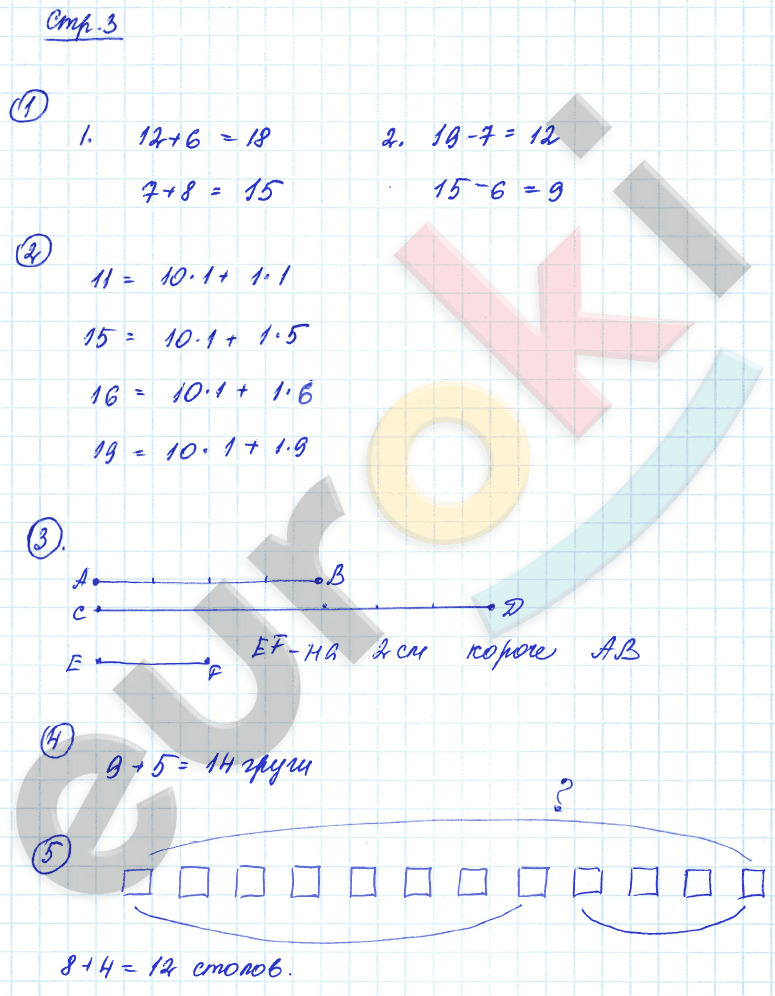 Стр. 3
1
1. 12+6 = 18
7+8 = 15
2. 19-7 = 12
15-6 = 9
2
11 = 10·1 + 1·1
15 = 10·1 + 1·5
16 = 10·1 + 1·6
19 = 10·1 + 1·9
3.
A B
C D
E F
EF - на 2 см короче AB
4
9 + 5 = 14 груш
?
5
8+4 = 12 столов.
euroki